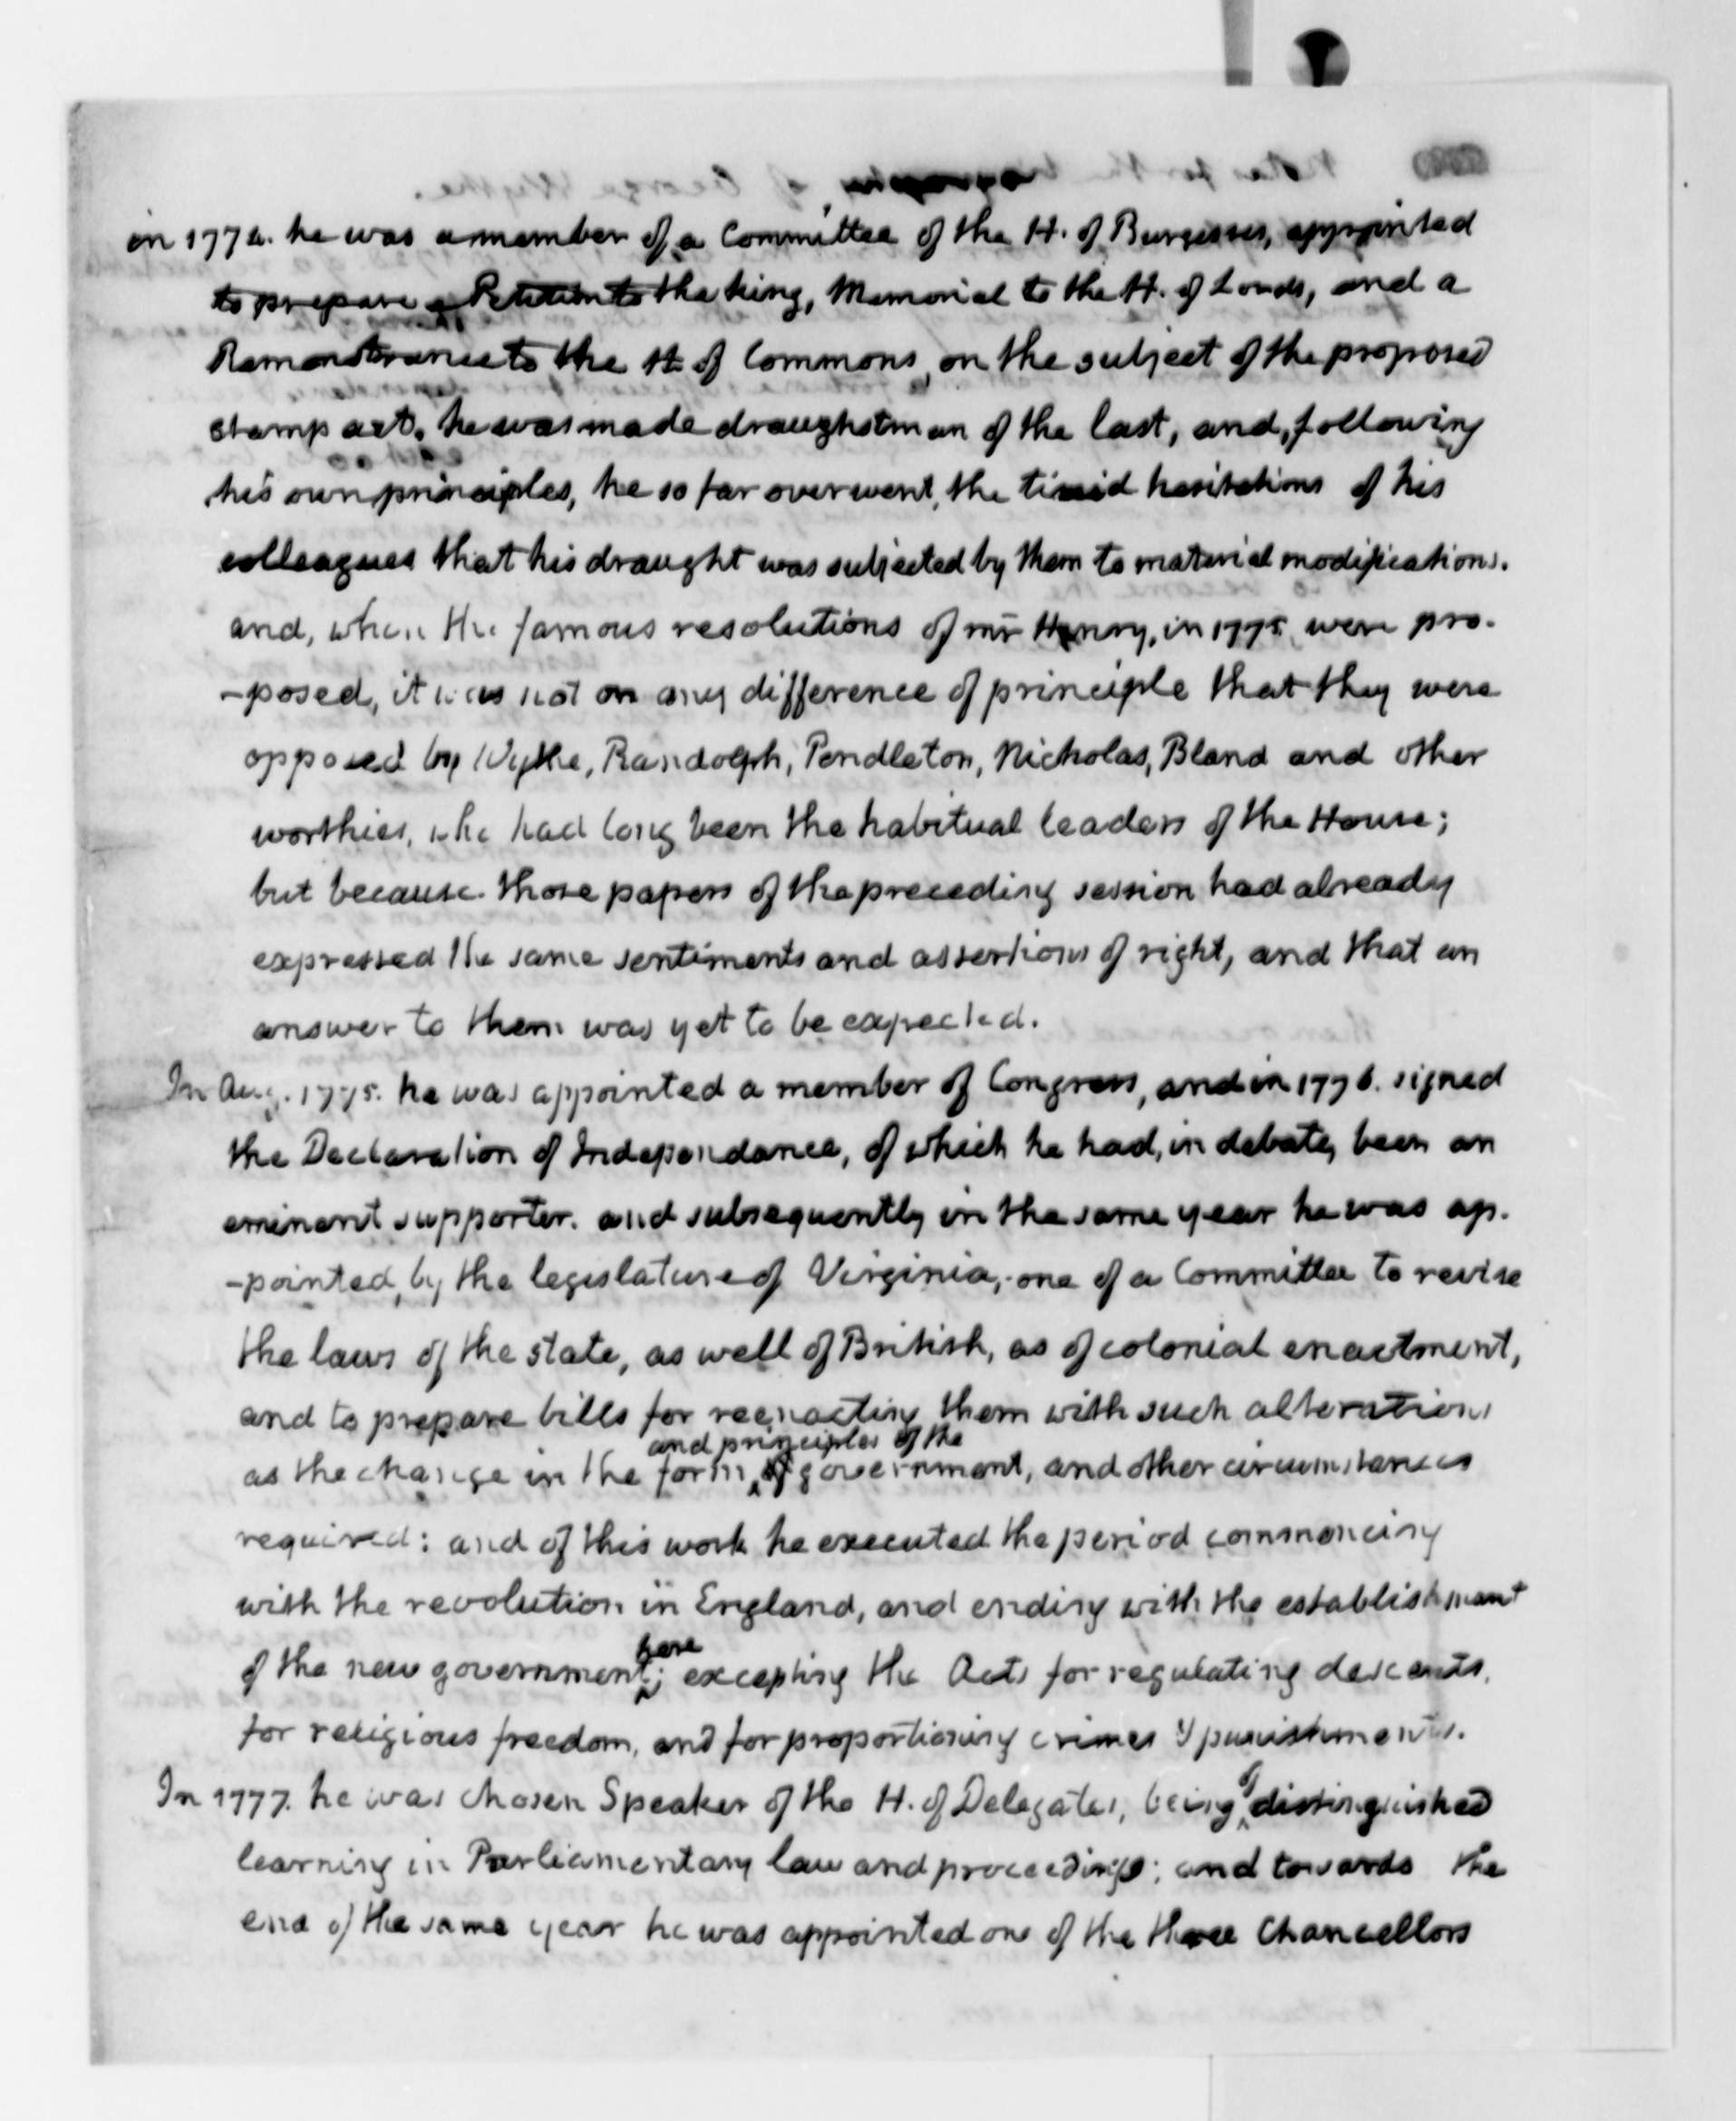 in 1774. he was a member of a Committee of the H. of Burgesses, appointed
to prepare a Petition to the king, Memorial to the H. of Lords, and a
Remonstrance to the H. of Commons, on the subject of the proposed
stamp act. he was made draughstman of the last, and, following
his own principles, he so far overwent, the timid hesitations of his
colleagues that his draught was subjected by them to material modifications.
and, when the famous resolutions of mr Henry, in 1775, were pro-
-posed, it was not on any difference of principle that they were
opposed by Wythe, Randolph, Pendleton, Nicholas, Bland and other
worthies, who had long been the habitual leaders of the House;
but because those papers of the preceding session had already
expressed the same sentiments and assertions of right, and that an
answer to them was yet to be expected.
In Aug. 1775. he was appointed a member of Congress, and in 1776. signed
the Declaration of Independance, of which he had, in debate, been an
eminent supporter. and subsequently in the same year he was ap-
-pointed, by the legislature of Virginia, one of a Committee to revise
the laws of the state, as well of British, as of colonial enactment,
and to prepare bills for reenacting them with such alterations
and principles of the
as the change in the form, of government, and other circumstances
required: and of this work he executed the period commencing
with the revolution in England, and ending with the establishment
here
of the new government; excepting the Acts for regulating descents,
for religious freedom, and for proportioning crimes & punishments.
of
In 1777. he was chosen Speaker of the H. of Delegates, being distinguished
learning in Parliamentary law and proceedings; and towards the
end of the same year he was appointed one of the three Chancellors